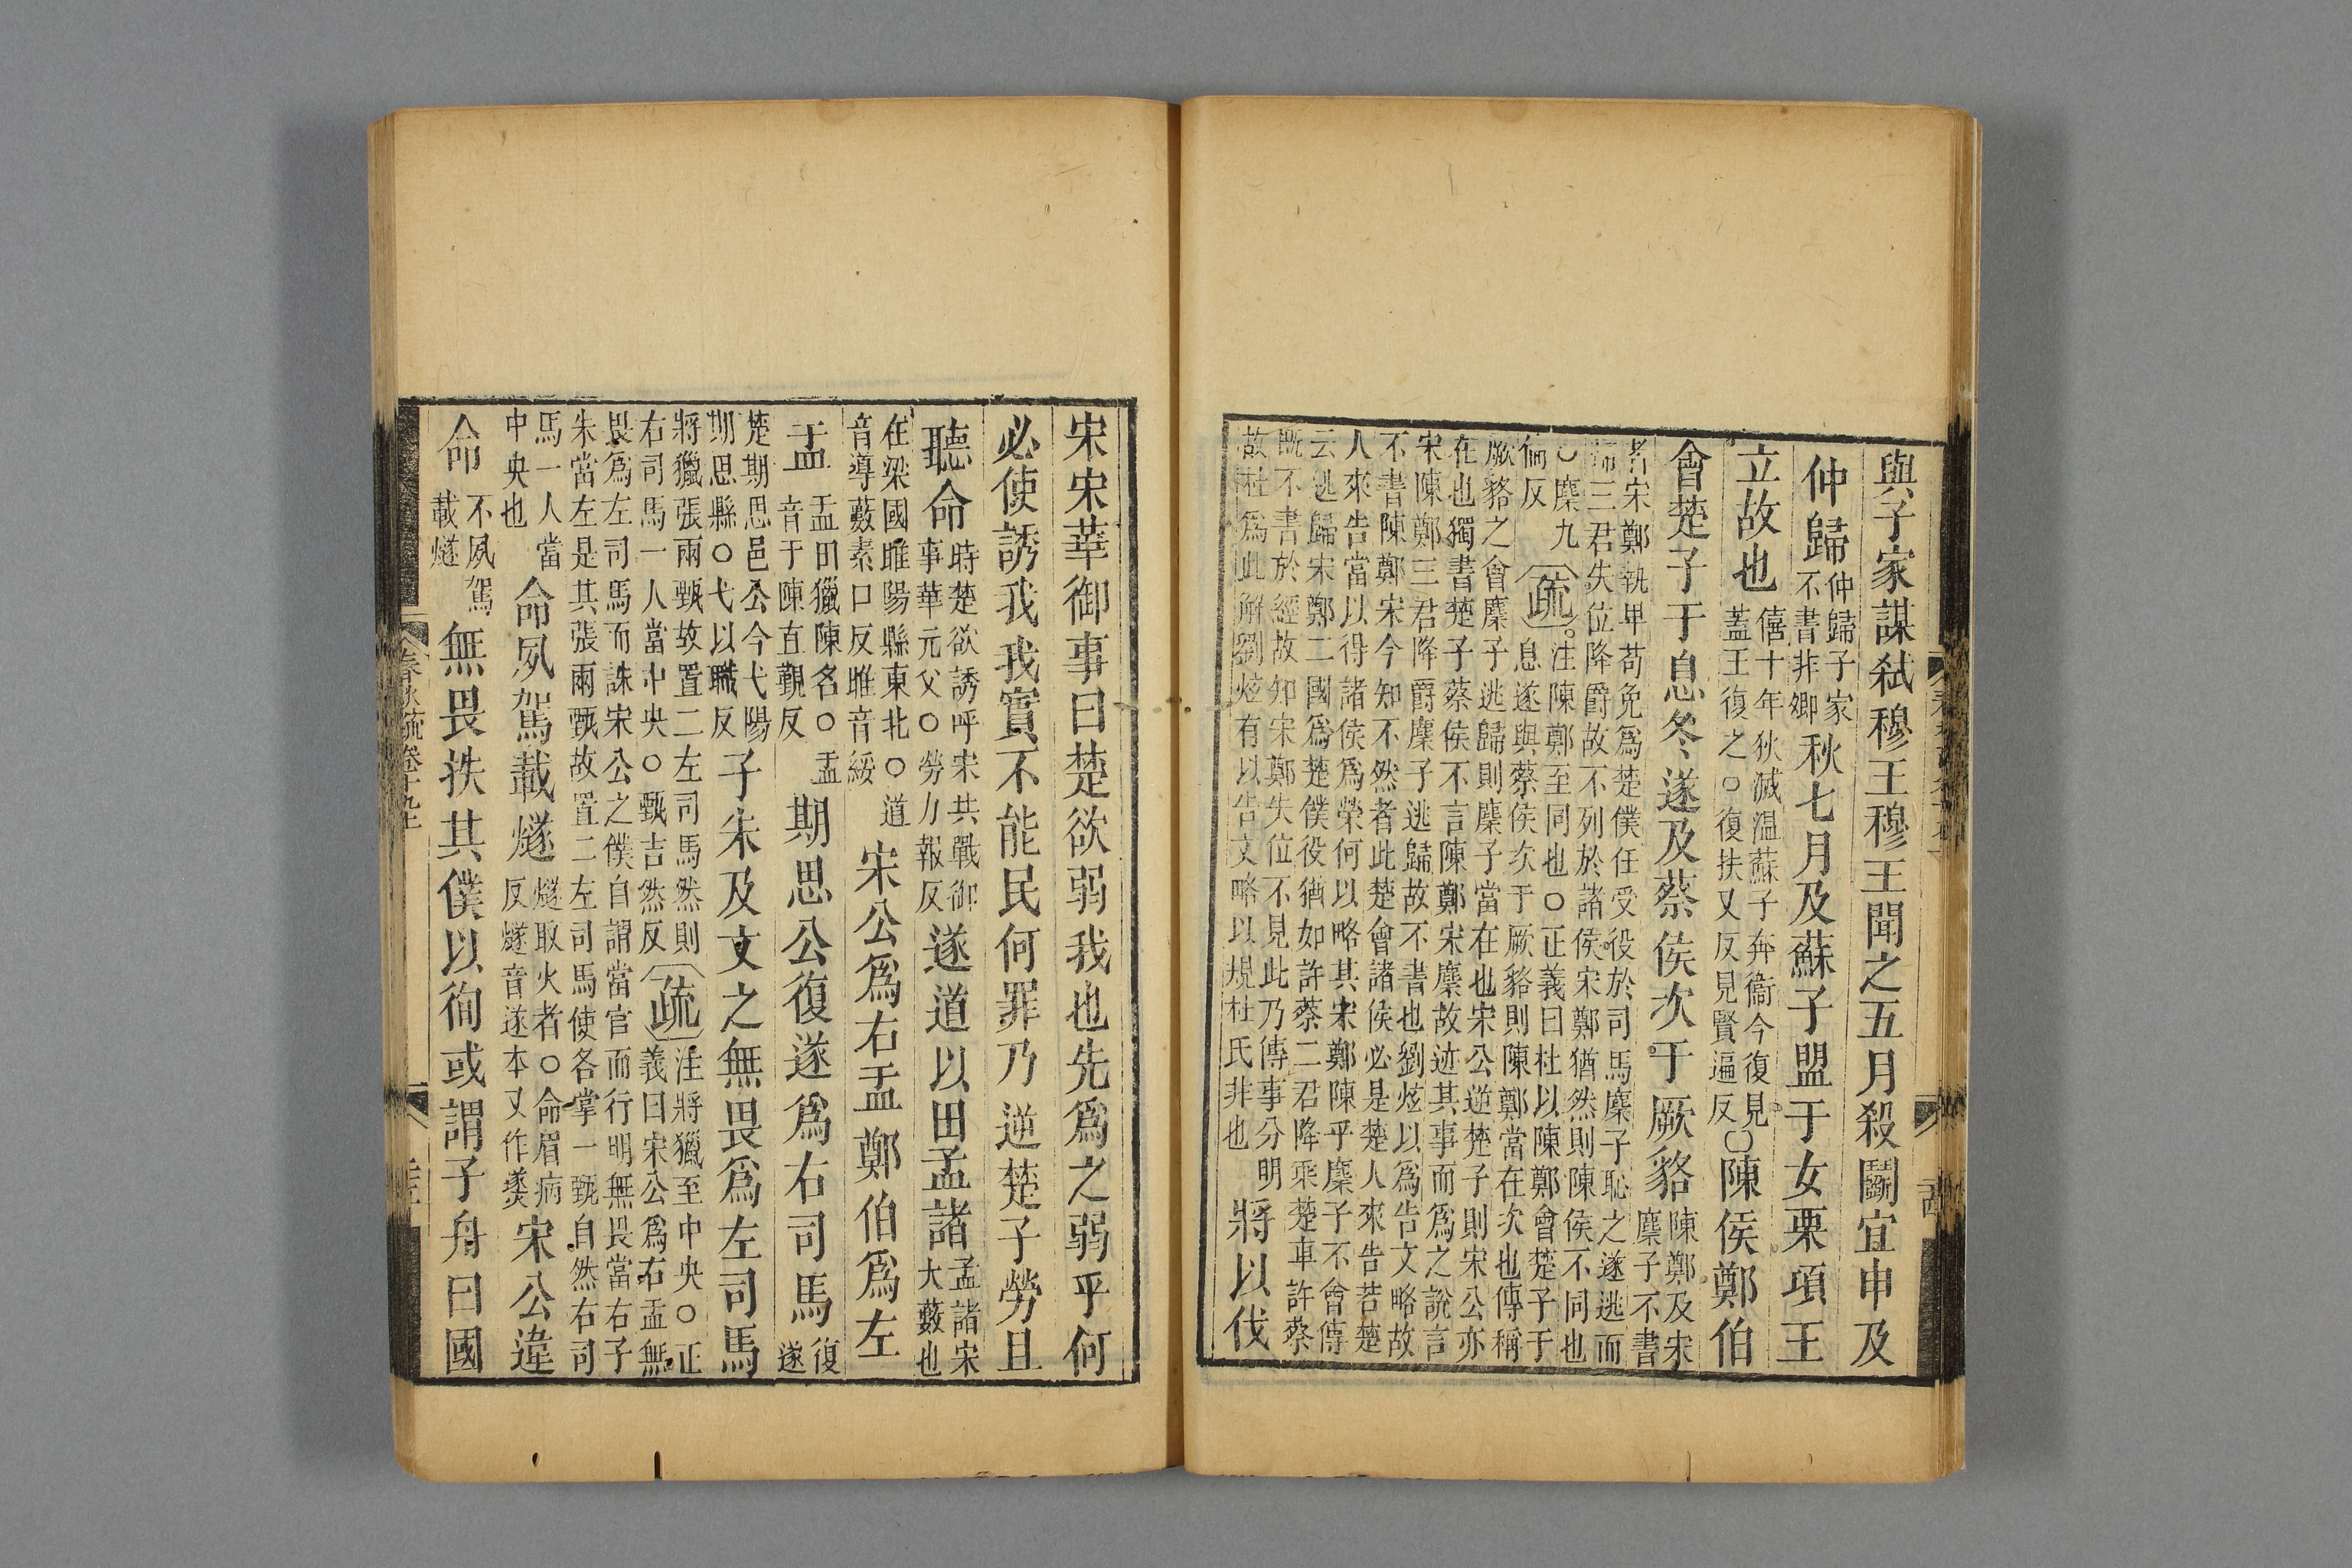 與子家謀弒穆王穆王聞之五月殺鬬宜申及
仲歸仲歸子家不書非卿秋七月及蘇子盟于女栗項王
立故也僖十年狄滅温蘇子奔衞今復見蓋王復之○復扶又反見賢遍反○陳侯鄭伯
會楚子于息冬遂及蔡侯次于厥貉陳鄭及宋麇子不書
者宋鄭執卑苟免爲楚僕任受役於司馬麇子恥之遂逃而
三君失位降爵故不列於諸侯宋鄭猶然則陳侯不同也
○麇九倫反疏注陳鄭至同也○正義曰杜以陳鄭會楚子于息遂與蔡侯次于厥貉則陳鄭當在次也傳稱
厥貉之會麇子逃歸則麇子當在也宋公逆楚子則宋公亦
在也獨書楚子蔡侯不言陳鄭宋麇故迹其事而爲之說言
宋陳鄭三君降爵麇子逃歸故不書也劉炫以爲告文略故
不書陳鄭宋今知不然者此楚會諸侯必是楚人來告苦楚
人來告當以得諸侯爲榮何以略其宋鄭陳乎麇子不會傳
云逃歸宋鄭二國爲楚僕役猶如許蔡二君降乘楚車許蔡
既不書於經故知宋鄭失位不見此乃傳事分明
故杜爲此解劉炫有以告文略以規杜氏非也將以伐
宋宋華御事曰楚欲弱我也先爲之弱乎何
必使誘我我實不能民何罪乃逆楚子勞且
聽命時楚欲誘呼宋共戰御事華元父○勞力報反遂道以田孟諸孟諸宋大藪也
在梁國睢陽縣東北○道音導藪素口反睢音綏宋公爲右盂鄭伯爲左
盂盂田獵陳名○盂音于陳直覲反期思公復遂爲右司馬復遂
楚期思邑公今弋陽期思縣○弋以職反子朱及文之無畏爲左司馬
將獵張兩甄故置二左司馬然則右司馬一人當中央○甄吉然反疏注將獵至中央○正義曰宋公爲右盂無
畏爲左司馬而誅宋公之僕自謂當官而行明無畏當右子
朱當左是其張兩甄故置二左司馬使各掌一甄自然右司
馬一人當中央也命夙駕載燧燧取火者○命眉病反燧音遂本又作㸂宋公違
命不夙駕載燧無畏抶其僕以徇或謂子舟曰國
春秋疏卷十九上